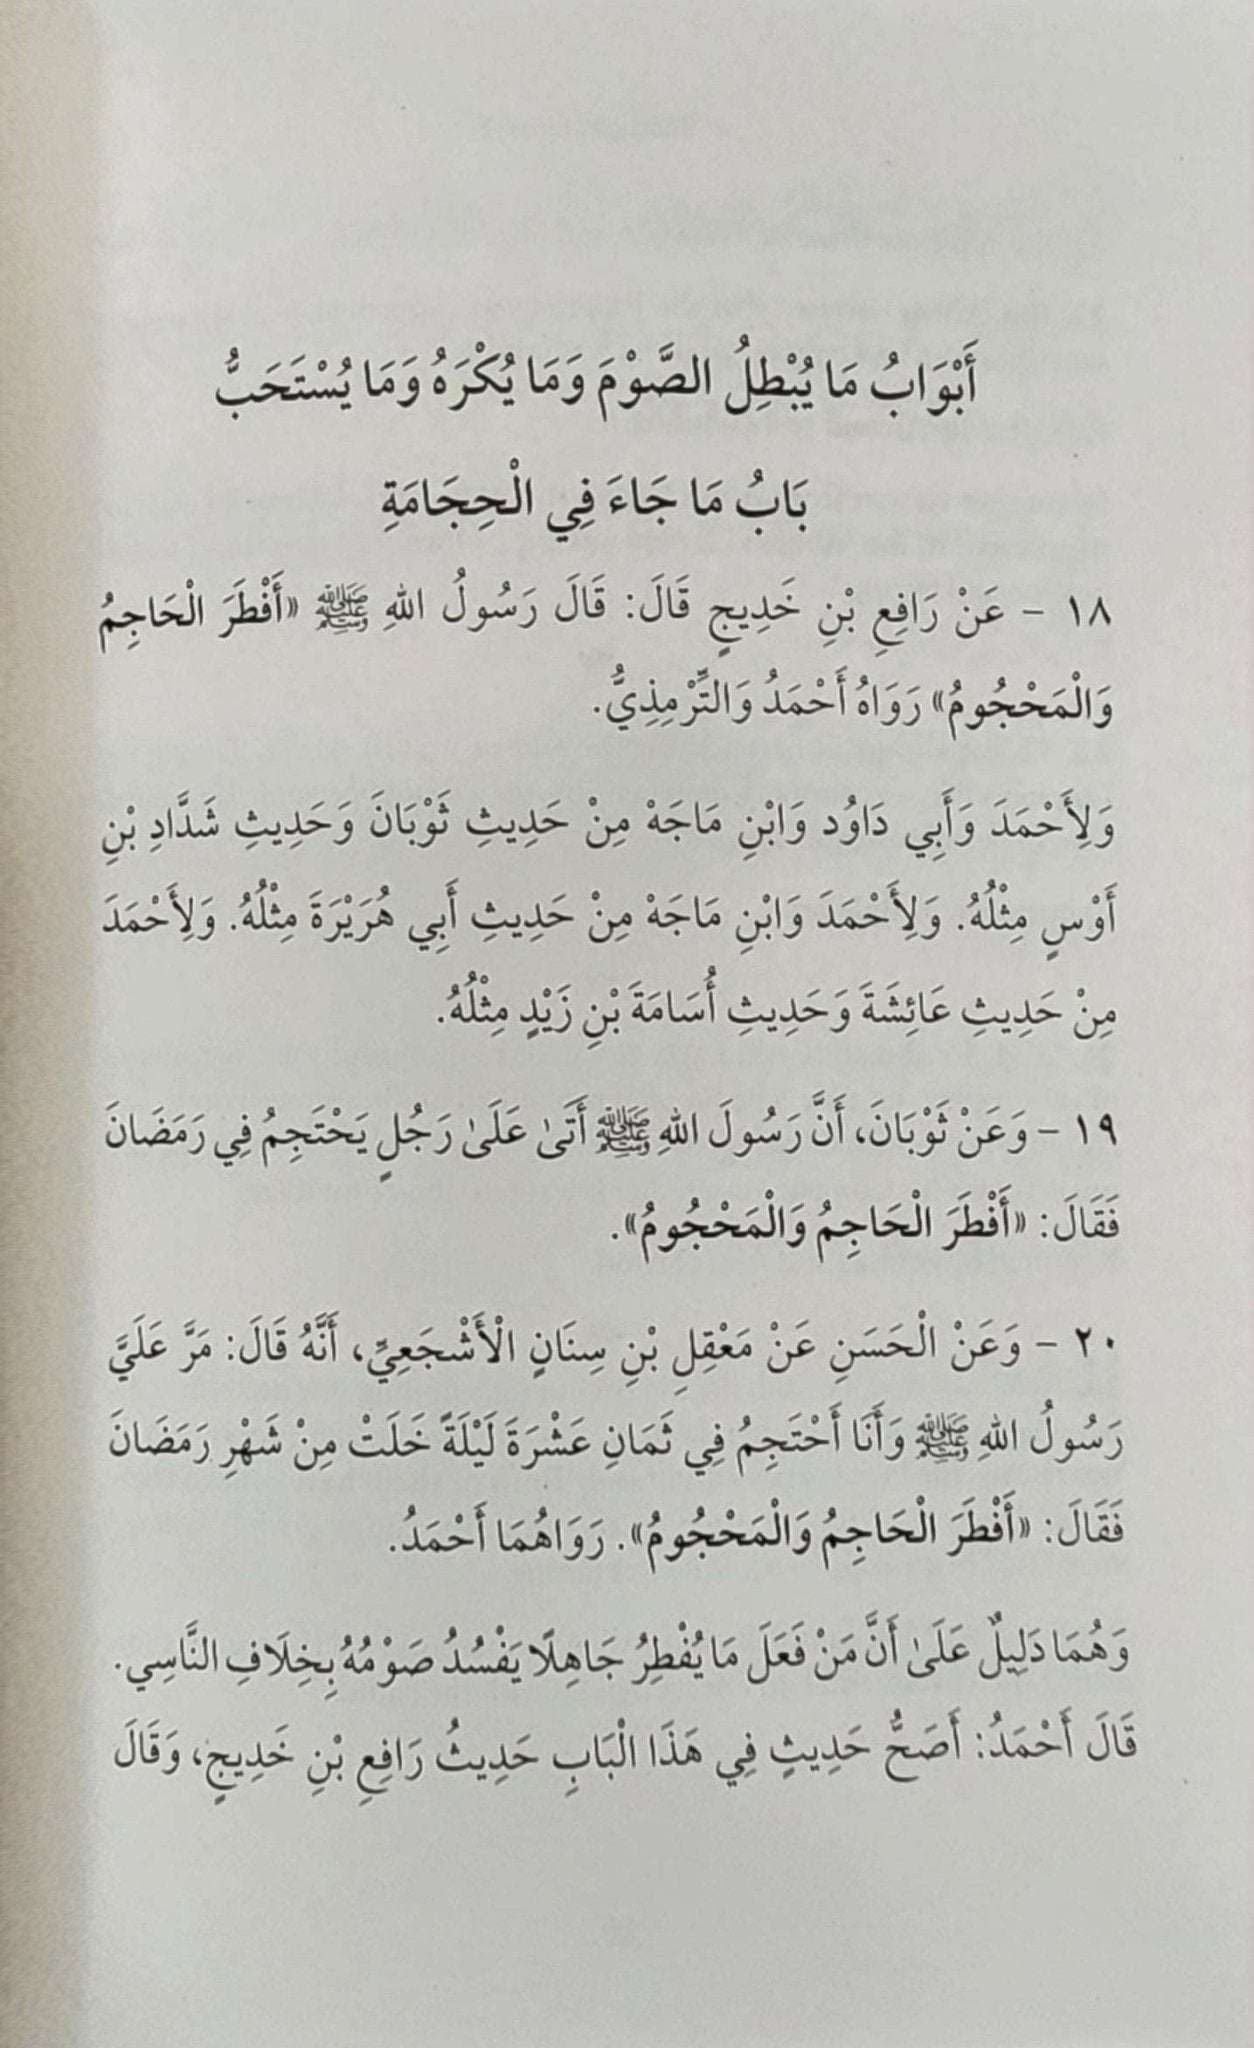 أَبْوَابُ مَا يُبْطِلُ الصَّوْمَ وَمَا يُكْرَهُ وَمَا يُسْتَحَبُّ
بَابُ مَا جَاءَ فِي الْحِجَامَةِ
١٨ - عَنْ رَافِعِ بْنِ خَدِيجٍ قَالَ: قَالَ رَسُولُ اللهِ ﷺ «أَفْطَرَ الْحَاجِمُ
وَالْمَحْجُومُ» رَوَاهُ أَحْمَدُ وَالتِّرْمِذِيُّ.
وَلِأَحْمَدَ وَأَبِي دَاوُد وَابْنِ مَاجَهْ مِنْ حَدِيثِ ثَوْبَانَ وَحَدِيثِ شَدَّادِ بْنِ
أَوْسٍ مِثْلُهُ. وَلِأَحْمَدَ وَابْنِ مَاجَهْ مِنْ حَدِيثِ أَبِي هُرَيْرَةَ مِثْلُهُ. وَلِأَحْمَدَ
مِنْ حَدِيثِ عَائِشَةَ وَحَدِيثِ أُسَامَةَ بْنِ زَيْدٍ مِثْلُهُ.
١٩ - وَعَنْ ثَوْبَانَ، أَنَّ رَسُولَ اللهِ ﷺ أَتَىٰ عَلَىٰ رَجُلٍ يَحْتَجِمُ فِي رَمَضَانَ
فَقَالَ: «أَفْطَرَ الْحَاجِمُ وَالْمَحْجُومُ».
٢٠ - وَعَنْ الْحَسَنِ عَنْ مَعْقِلِ بْنِ سِنَانٍ الْأَشْجَعِيِّ، أَنَّهُ قَالَ: مَرَّ عَلَيَّ
رَسُولُ اللهِ ﷺ وَأَنَا أَحْتَجِمُ فِي ثَمَانِ عَشْرَةَ لَيْلَةً خَلَتْ مِنْ شَهْرِ رَمَضَانَ
فَقَالَ: «أَفْطَرَ الْحَاجِمُ وَالْمَحْجُومُ». رَوَاهُمَا أَحْمَدُ.
وَهُمَا دَلِيلٌ عَلَىٰ أَنَّ مَنْ فَعَلَ مَا يُفْطِرُ جَاهِلًا يَفْسُدُ صَوْمُهُ بِخِلَافِ النَّاسِي.
قَالَ أَحْمَدُ: أَصَحُّ حَدِيثٍ فِي هَذَا الْبَابِ حَدِيثُ رَافِعِ بْنِ خَدِيجٍ، وَقَالَ